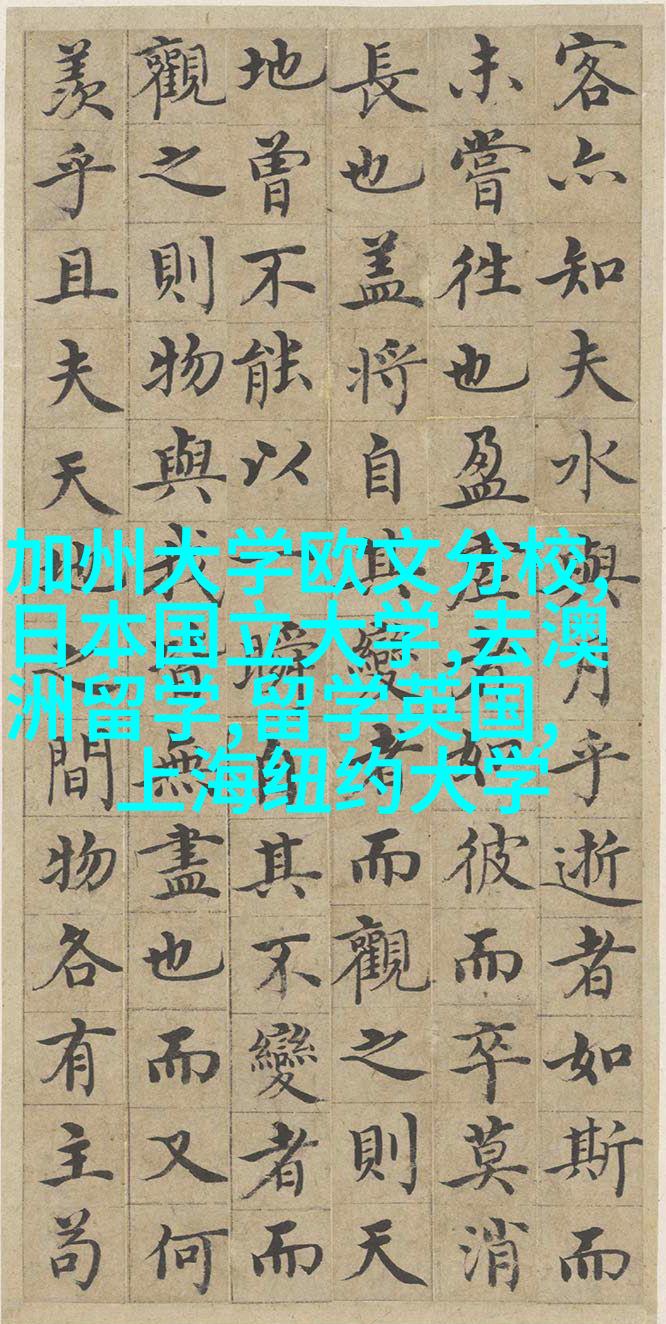 客亦知夫水與月乎逝者如斯而
未嘗往也盈虛者如彼而卒莫消
長也盖將自其變者而觀之則天
地曾不能以一瞬自其不變者而
觀之則物與我皆無盡也而又何
羨乎且夫天地之間物各有主苟
加州大学欧文分校,
日本国立大学,去澳
洲留学,留学英国,
上海纽约大学